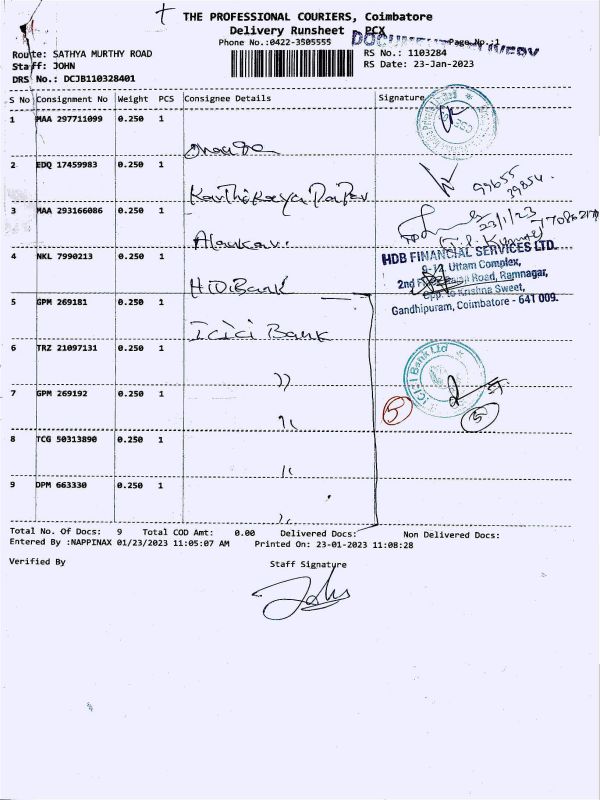 THE PROFESSIONAL COURIERS, Coimbatore
Delivery Runsheet PCX
Phone No.:0422-3505555
Page No.:1
Route: SATHYA MURTHY ROAD
RS No.: 1103284
Staff: JOHN
RS Date: 23-Jan-2023
DRS No.: DCJB110328401
S No Consignment No Weight PCS Consignee Details Signature
1 MAA 297711099 0.250 1
2 EDQ 17459983 0.250 1
99655
39854.
3 MAA 293166086 0.250 1
23/1/23
4 NKL 7990213 0.250 1
HDB FINANCIAL SERVICES LTD.
Uttam Complex,
Road, Ramnagar,
Opp. to Krishna Sweet,
Gandhipuram, Coimbatore - 641 009.
5 GPM 269181 0.250 1
ICICI Bank
6 TRZ 21097131 0.250 1
ICICI Bank Ltd
7 GPM 269192 0.250 1
5
5
8 TCG 50313890 0.250 1
9 DPM 663330 0.250 1
Total No. Of Docs: 9 Total COD Amt: 0.00 Delivered Docs: Non Delivered Docs:
Entered By :NAPPINAX 01/23/2023 11:05:07 AM Printed On: 23-01-2023 11:08:28
Verified By Staff Signature
John